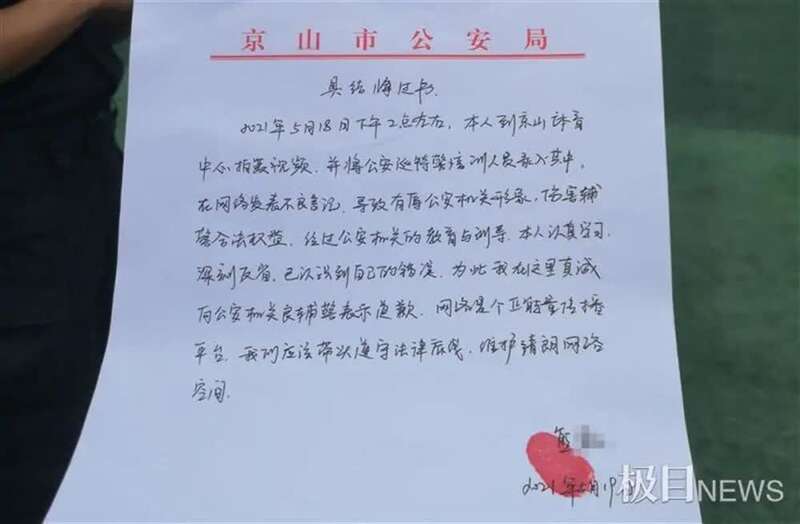 京山市公安局
具结悔过书
2021年5月18日下午2点左右，本人到京山体育
中心拍摄视频，并将公安巡特警培训人员录入其中，
在网络发表不良言论，导致有辱公安机关形象，伤害辅
警合法权益，经过公安机关的教育与训导，本人认真学习
深刻反省，已认识到自己的错误，为此我在这里真诚
向公安机关及辅警表示道歉，网络是个正能量传播
平台，我们应该带头遵守法律底线，维护清朗网络
空间。
熊
2021年5月19日
极目NEWS